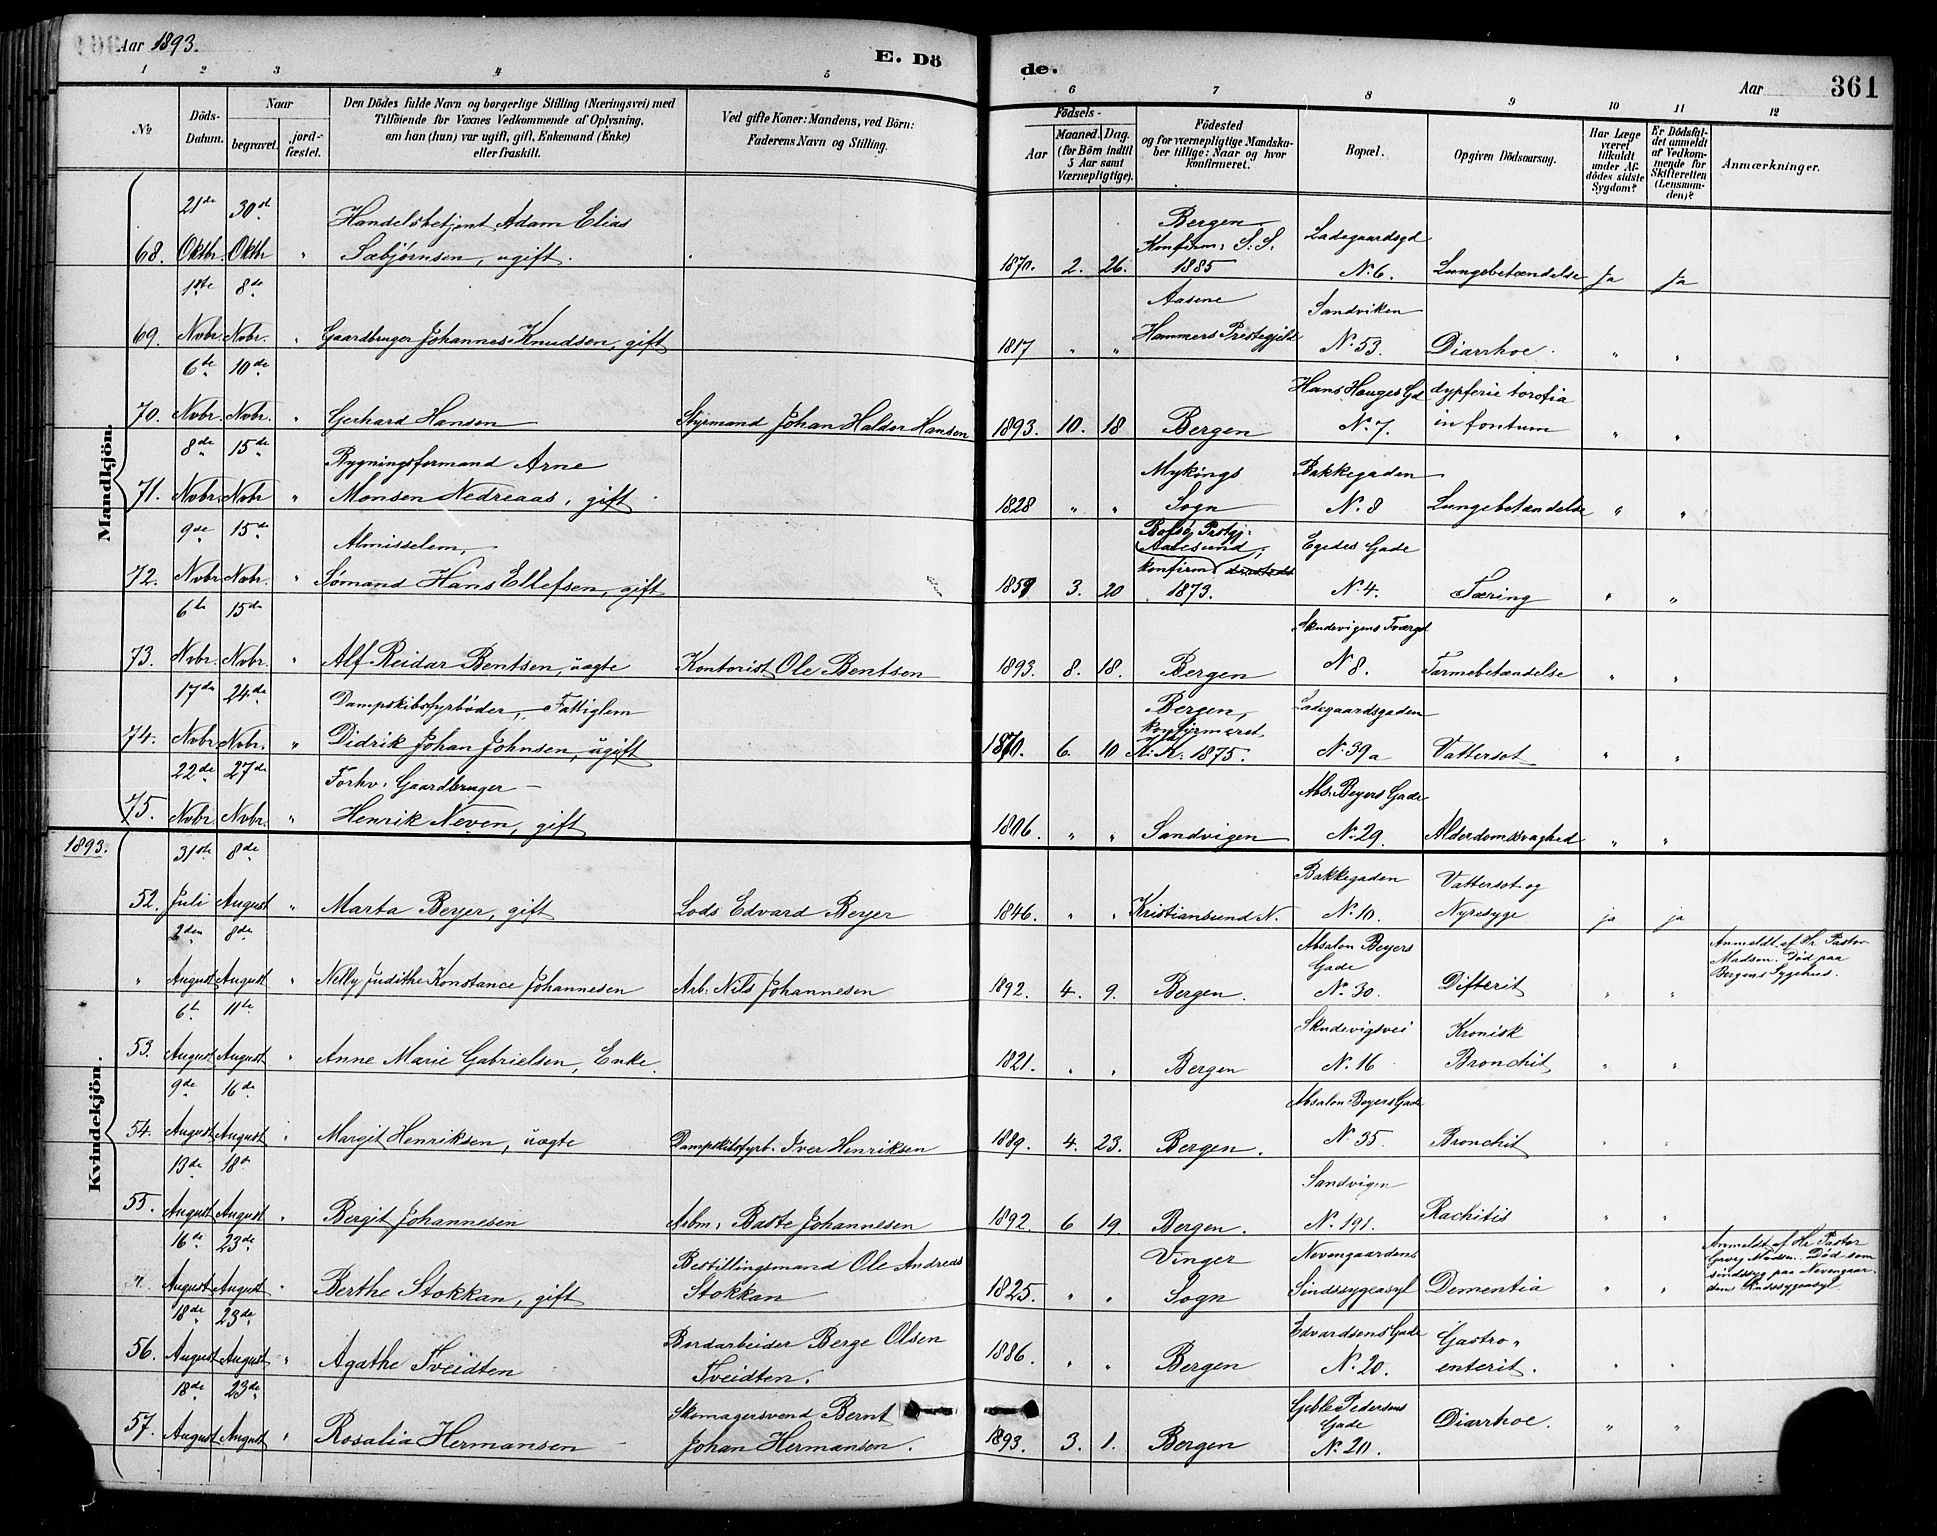 Aar 1893.
E. Dö
de.
Aar
361
1 2 3 4 5 6 7 8 9 10 11 12
No
Döds-
Datum.
Naar
begravet.
jord-
fæstet.
Den Dödes fulde Navn og borgerlige Stilling (Næringsvei) med
Tilföiende for Voxnes Vedkommende af Oplysning,
om han (hun) var ugift, gift, Enkemand (Enke)
eller fraskilt.
Ved gifte Koner: Mandens, ved Börn:
Faderens Navn og Stilling.
Födsels-
Aar
Maaned. Dag.
(for Börn indtil
5 Aar samt
Værnepligtige).
Födested
og for værnepligtige Mandska-
ber tillige: Naar og hvor
konfirmeret.
Bopæl.
Opgiven Dödsaarsag.
Har Læge
været
tilkaldt
under Af-
dödes sidste
Sygdom?
Er Dödsfal-
det anmeldt
af Vedkom-
mende for
Skifteretten
(Lensman-
den)?
Anmærkninger.
Mandkjön.
21de 30te Handelsbetjent Adam Elias Bergen Ladegaardsgd
Konfirm: S. S.
68. Oktbr. Oktbr " Sæbjørnsen, ugift. 1870. 2. 26. 1885 No 6. Lungebetændelse ja ja
1ste 8de Aasene Sandviken
69. Novbr. Novbr. " Gaardbruger Johannes Knudsen, gift 1817 " " Hammers Prestegjeld No 53. Diarrhoe. " "
6te 10de Hans Hauges Gd
70. Novbr. Novbr. " Gerhard Hansen Styrmand Johan Halder Hansen 1893. 10. 18 Bergen No 7. " "
8de 15de Bygningsformand Arne Bakkegaden
71. Novbr. Novbr " Monsen Nedreaas, gift 1828 " " Sogn No 8 Lungebetændelse " "
9de 15de Almisselem, Aalesund, Egedes Gade
konfirm
72. Novbr Novbr " Sømand Hans Ellefsen, gift 3. 20 1873. No 4. Tæring " "
6te 15de Skudevigens Tværgd
73. Novbr. Novbr. " Alf Reidar Bentsen, uægte Kontorist Ole Bentsen 1893. 8. 18. Bergen No 8. Tarmebetændelse " "
17de 24de Dampskibsfyrbøder, Fattiglem Bergen, Ladegaardsgaden
konfirmeret
74. Novbr Novbr. " Didrik Johan Johnsen, ugift 6. 10 1875. No 39a Vattersot " "
22de 27de Forhv. Gaardbruger Abs. Beyers Gade
75. Novbr. Novbr. " Henrik Neven, gift 1806. " " Sandvigen No 29. Alderdomssvaghed " "
1893.
Kvindekjön.
31te 8de Bakkegaden Vattersot og
52. Juli August " Marta Beyer, gift Lods Edvard Beyer 1846. " " Kristiansund N. No 10. Nyresyge ja ja
2den 8de Absalon Beyers Anmeldt af Hr Pastor
Gade Madsen. Død paa
" August August " Nelly Judithe Konstance Johannesen Arb. Nils Johannesen 1892. 4. 9. Bergen. No 30. Difterit " " Bergens Sygehus.
6te 11te Skudevigsvei Kronisk
53. August August " Anne Marie Gabrielsen, Enke. 1821. " " Bergen No 16 Bronchit " "
9de 16de Absalon Beyers Gade
54. August August " Margit Henriksen, uægte Dampskibsfyrb. Iver Henriksen 1889. 4. 23. Bergen. No 35. Bronchit " "
13de 18de Sandvigen
55. August August " Bergit Johannesen Arbm. Baste Johannesen 1892 6 19. Bergen. No 191. Rachitis " "
16de 23de Bestillingsmand Ole Andreas Vinger Nevengaardens Anmeldt af Hr Pastor
Madsen. Død som
" August August " Berthe Stokkan, gift Stokkan 1825. " " Sogn Sindssygeasyl Dementia " " sindssyg paa Nevengaar-
dens Sindssygeasyl
18de 23de Bordarbeider Berge Olsen Edvardsens Gade Gastro-
56. August August " Agathe Tveidten Tveidten. 1886. " " Bergen No 20. enterit. " "
18de 23de Skomagersvend Bernt Geble Pedersens
Gade
57. August August " Rosalia Hermansen Johan Hermansen. 1893. 3. 1. Bergen No 20. Diarrhoe. " "